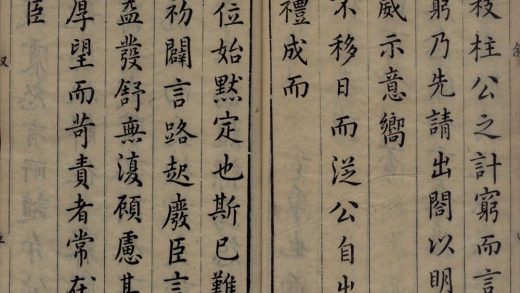 枝柱公之計窮而言
窮乃先請出閤以明
威示意嚮
不移日而從公自出
禮成而
位始默定也斯已難
初闢言路起廢臣言
益發舒無復顧慮其
厚望而苛責者常在
臣